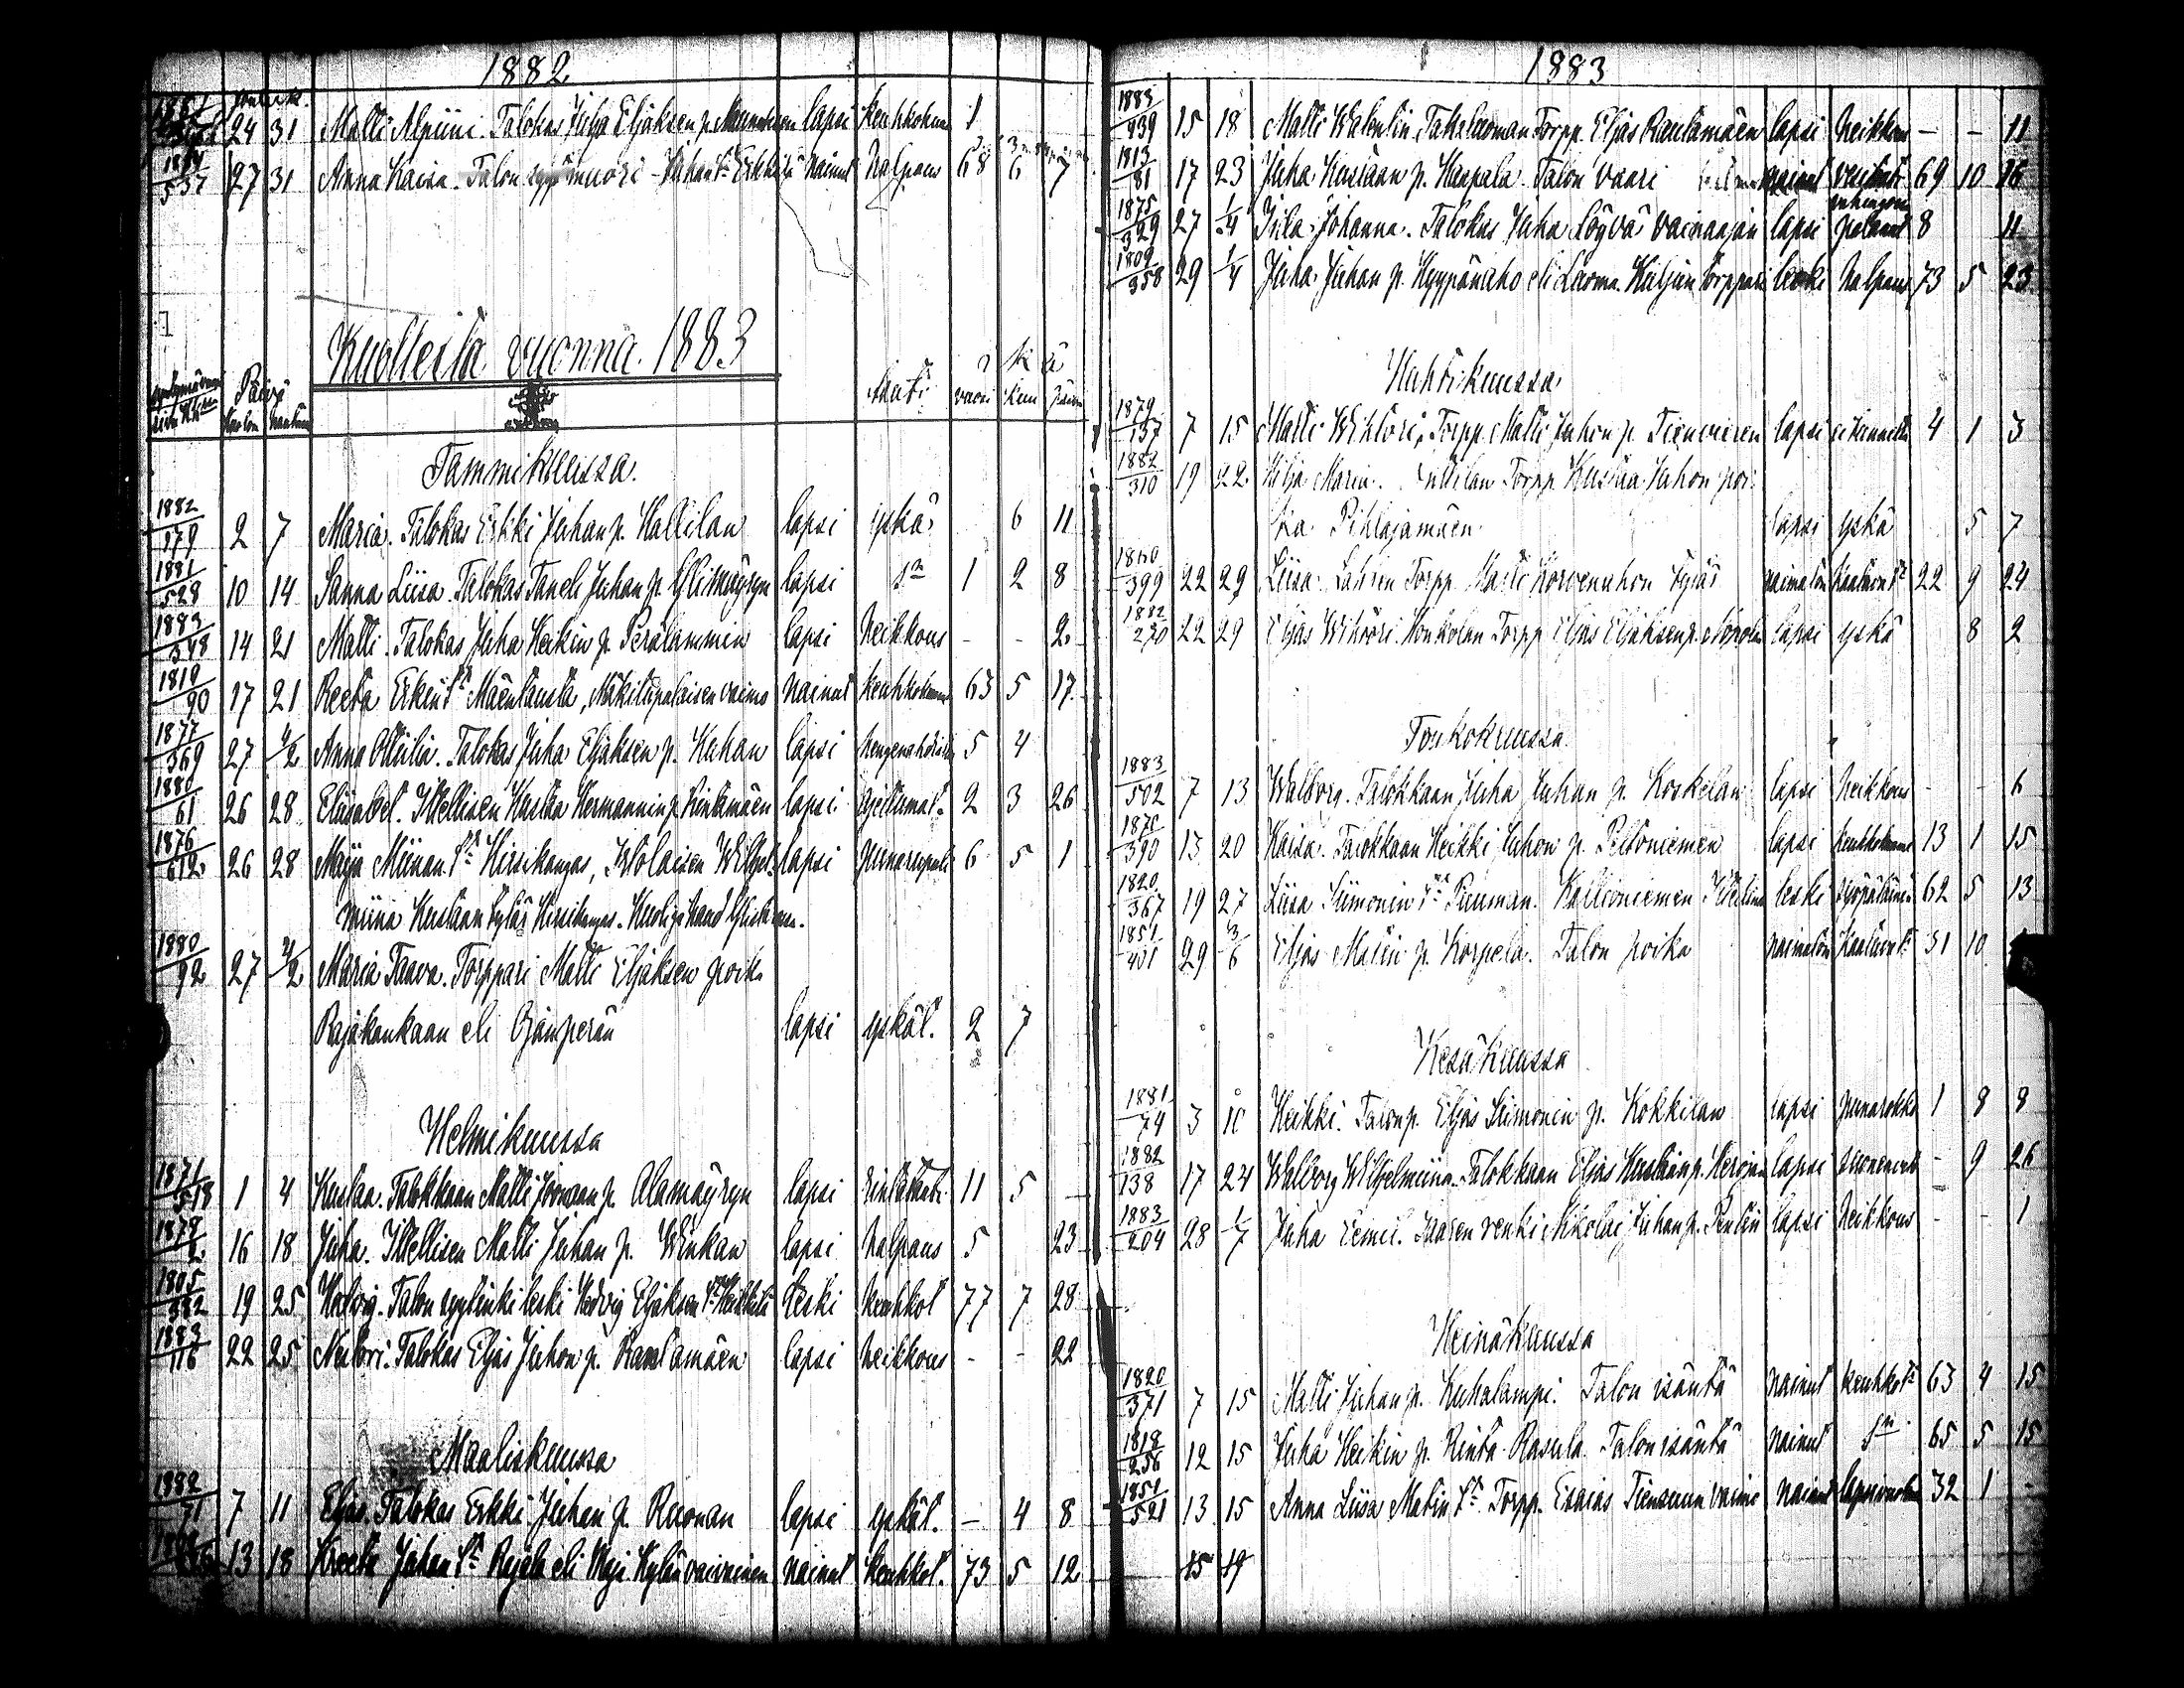 1882
24 31 Matti Alpiini. Talokas Juha Eljaksen p. lapsi keuhkokuume 1
1814/537 27 31 Anna Kaisa. Talon muori Juhan tr nainut halpaus 68 6 7
Kuolleita vuonna 1883
Päivä Ikä
kuolon hautaus tauti vuosi kuu päivä
Tammikuussa
1882/179 2 7 Maria. Talokas Erkki Juhan p. Hallilan lapsi yskä 6 11
1881/528 10 14 Sanna Liisa. Talokas Taneli Juhan p. Ylimäyryn lapsi sm 1 2 8
1883/348 14 21 Matti. Talokas Juha Heikin p. Perälammin lapsi heikkous - - 2
1819/90 17 21 Reeta Erkin tr Mäentausta, Mäkitupalaisen vaimo nainut keuhkokuume 63 5 17
1877/369 27 4/2 Anna Otteilia. Talokas Juha Eljaksen p. Kuhan lapsi hengenahdistus 5 4
1880/61 26 28 Elisabet. Itsellisen Kustaa Hermannin p. Rintamäen lapsi 2 3 26
1876/612 26 28 Maija Miinan tr Hirsikangas, Irtolaisen Wilhel- lapsi punarupuli 6 5 1
miina Kustaan tytär Hirsikangas.
1880/92 27 4/2 Maria Taava. Torppari Matti Eljaksen poik.
Rajakankaan eli Ojanperän lapsi yskät. 2 7
Helmikuussa
1871/518 1 4 Kustaa. Talokkaan Matti Joonaan p. Alamäyryn lapsi rintataut. 11 5 -
1878/2 16 18 Juha. Itsellisen Matti Juhan p. Winkan lapsi halpaus 5 23
1805/382 19 25 Hedvig. Talon syytinki leski Hedvig Eljaksen tr Heikkilä leski keuhkot 77 7 28
1883/116 22 25 Nestori. Talokas Eljas Juhon p. Rantamäen lapsi heikkous - - 22
Maaliskuussa
1882/71 7 11 Eljas. Talokas Erkki Juhan p. Ruonan lapsi yskät. - 4 8
13 18 Kreeta Juhan tr Rajala eli Kylän vaivainen nainut keuhkot. 73 5 12
1883
1883/939 15 18 Matti Walentin. Takaluoman Torpp. Eljas Rantamäen lapsi heikkous - - 11
1813/81 17 23 Juha Kustaan p. Haapala. Talon vaari nainut 69 10 16
1875/329 27 1/4 Johanna. Talokas Juha Löyvä vainaajan lapsi palanut 8 11
1809/358 29 1/4 Juha Juhan p. Hyypänaho eli Luoma. Kuljun torppari leski halpaus 73 5 23
Huhtikuussa
1879/157 7 15 Matti Wihtori, Torpp. Matti Juhon p. Tienvieren lapsi 4 1 3
1882/310 19 22 Hilja Maria. Torpp Kustaa Juhon poi-
ka Pihlajamäen lapsi yskä 5 7
1860/399 22 29 Liisa. Torpp. Matti Korvenahon tytär naimaton 22 9 24
1882/270 22 29 Eljas Wihtori. Honkolan Torpp Eljas Eljaksen p. lapsi yskä 8 2
Toukokuussa
1883/502 7 13 Walborg. Talokkaan Juha Juhan p. Koskelan lapsi heikkous - - 6
1870/390 13 20 Kaisa. Talokkaan Heikki Juhon p. Peltoniemen lapsi keuhkokuume 13 1 15
1820/367 19 27 Liisa Siimonin tr Puuman. Kallioniemen leski 62 5 13
1851/401 29 3/6 Eljas Matin p. Korpela. Talon poika naimaton 31 10
Kesäkuussa
1881/74 3 10 Heikki. Talonp. Eljas Siimonin p. Kokkilan lapsi punarokko 1 8 8
1882/138 17 24 Walborg Wilhelmiina. Talokkaan Eljas Kustaan p. lapsi - 9 26
1883/204 28 1/7 Juha Eemil. Saaren renki Nikolai Juhan p. Pentin lapsi heikkous - - 1
Heinäkuussa
1820/371 7 15 Matti Juhan p. Kuhalampi. Talon isäntä nainut keuhkot. 63 4 15
1818/256 12 15 Juha Heikin p. Rinta-Rasula. Talon isäntä nainut sm 65 5 15
1851/521 13 15 Anna Liisa Matin tr. Torpp. Esaias Tiensuun vaimo nainut 32 1 -
15 19